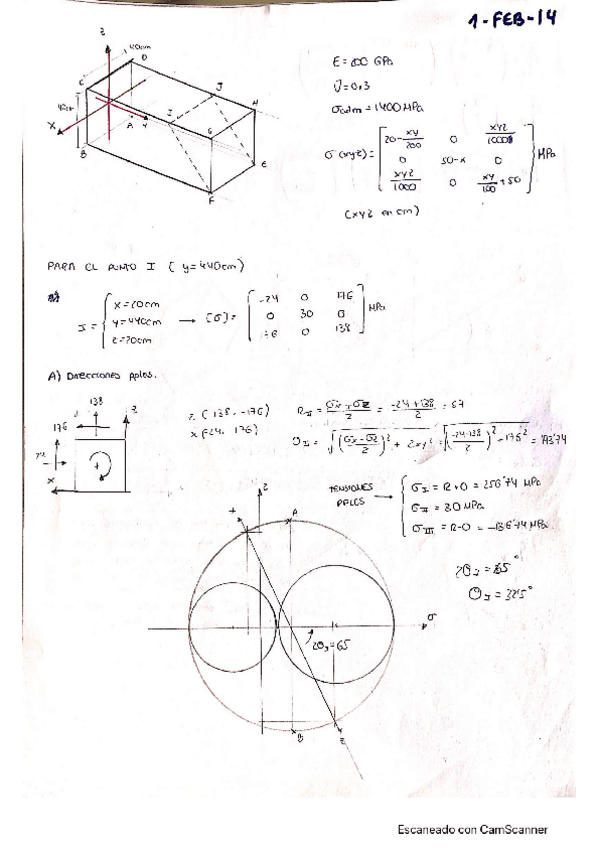 1-FEB-14
z
40cm
C
D
J
H
I
G
40cm
X
A
Y
B
E
F
E = 200 GPa
ν = 0,3
σadm = 1400 MPa
σ(xyz) = [ 20-xy/200 0 xyz/1000
0 50-x 0
xyz/1000 0 xy/100+50 ] MPa
(xyz en cm)
PARA EL PUNTO I ( y=440cm)
I = { x=20cm
y=440cm
z=20cm
→ [σ] = [ -24 0 176
0 30 0
176 0 138 ] MPa
A) Direcciones pples.
138
z
176
24
x
+
z ( 138, -176)
x (-24, 176)
= σx+σz / 2 = -24+138 / 2 = 57
= √((σx-σz / 2)² + = √((-24-138 / 2)² 176² = 193'74
TENSIONES
PPLES
→ { σI = R+O = 250'74 MPa
σII = 30 MPa
σIII = R-O = -136'74 MPa
= 65°
= 32'5°
A
σ
= 65
B
z
Escaneado con CamScanner